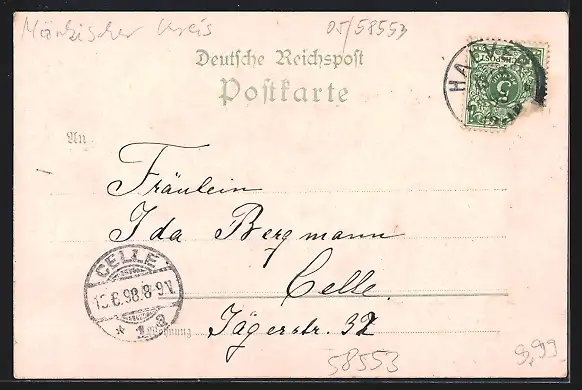 Märkischer Kreis
05/58553
Deutsche Reichspost
Postkarte
HALVER
5
An
Fräulein
Ida Bergmann
Celle.
Jägerstr. 32
Wohnung
CELLE
8-9V.
* 1 a
58553
9,99